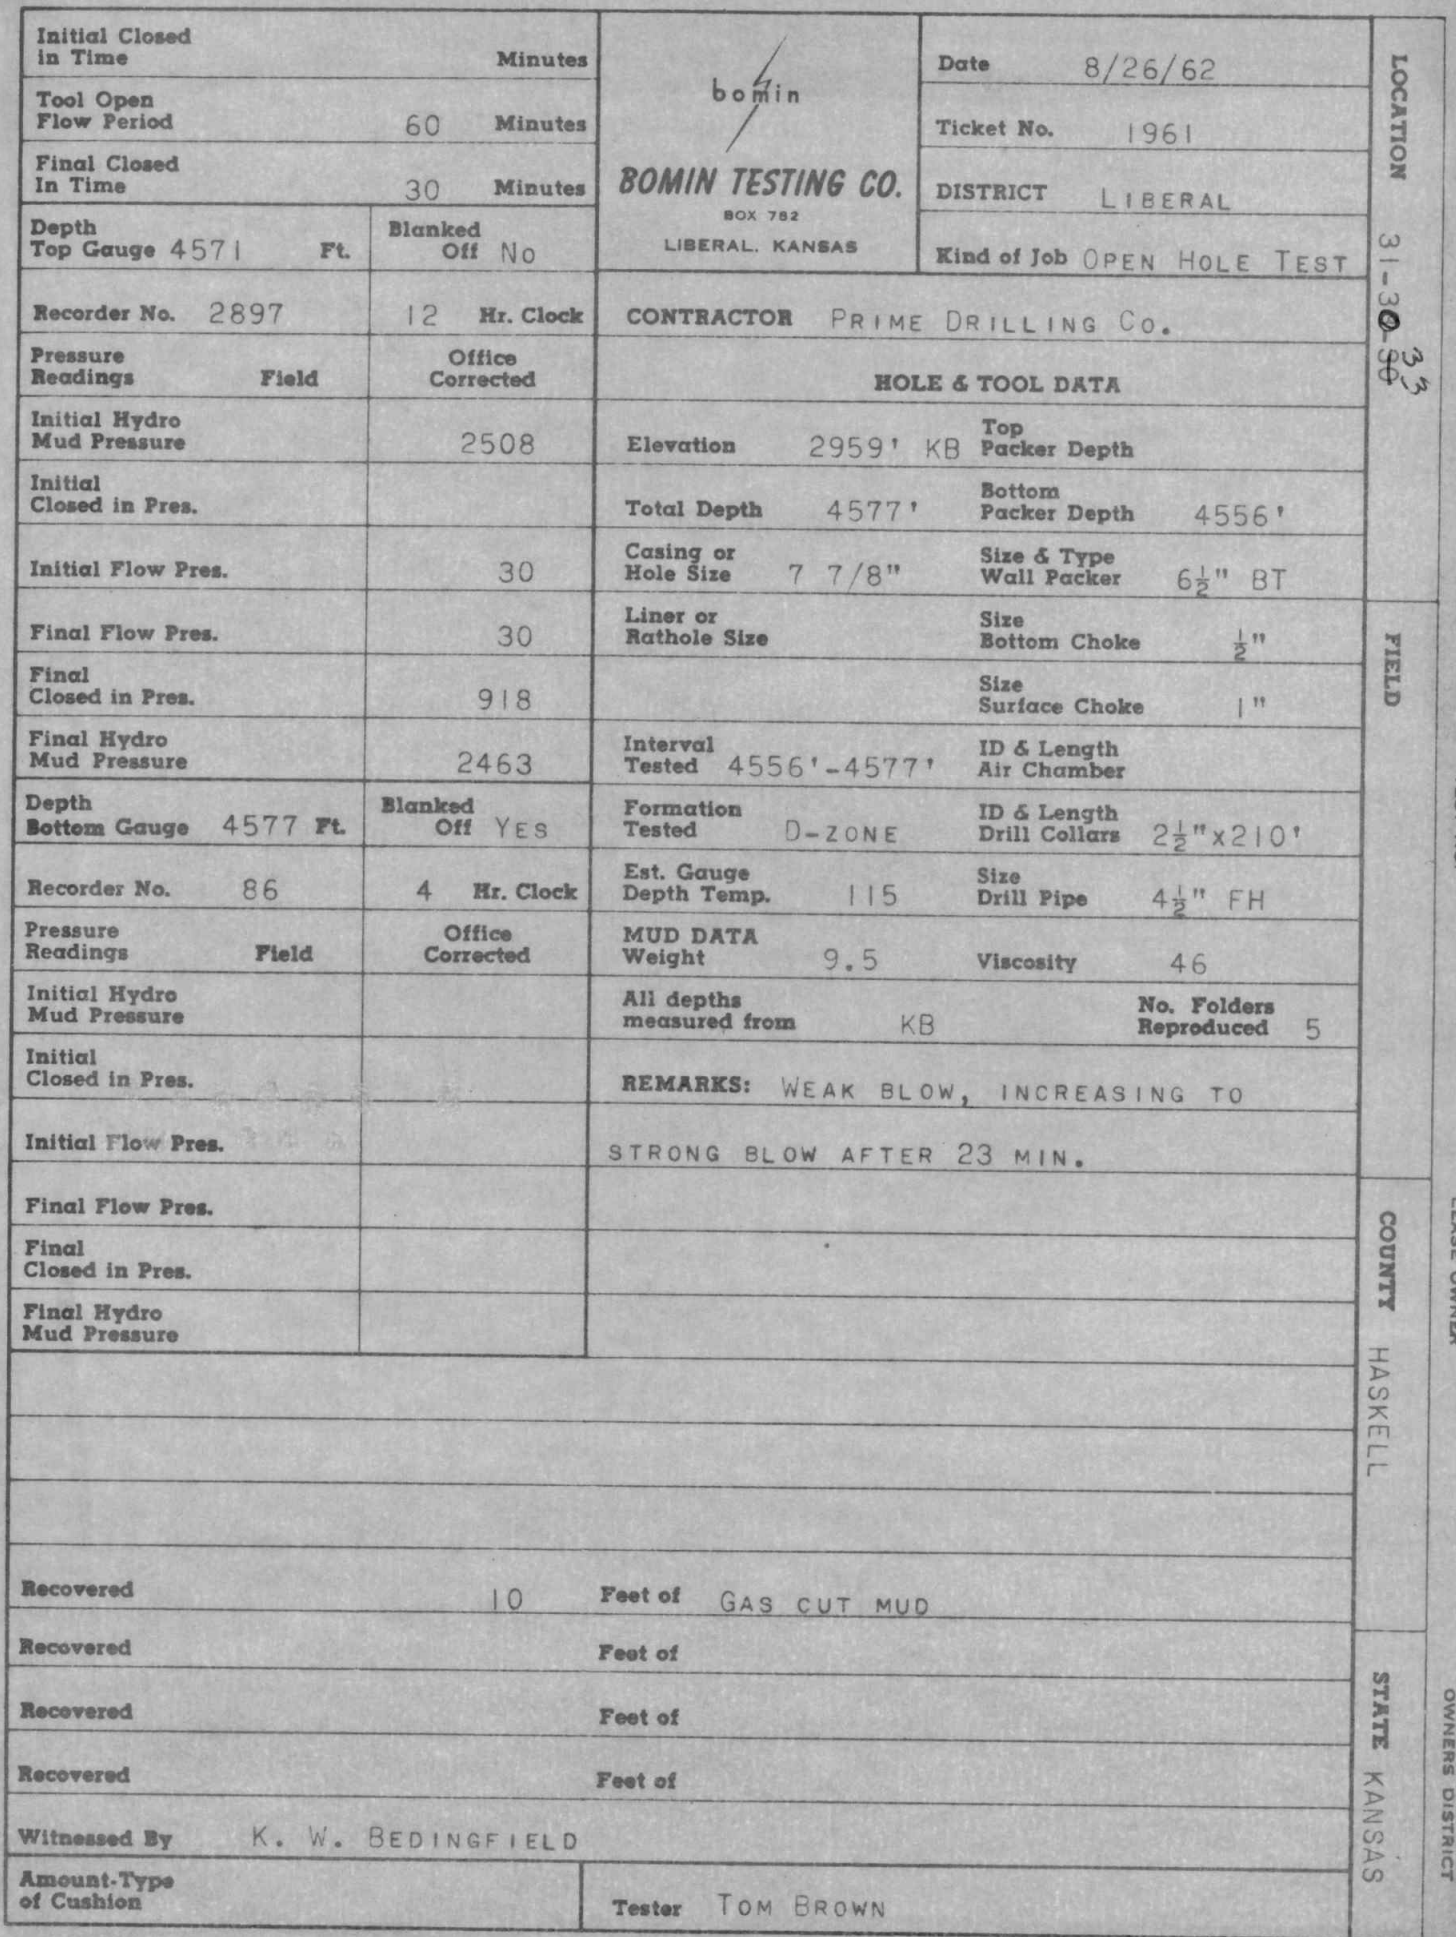 Initial Closed
in Time Minutes
Tool Open
Flow Period 60 Minutes
Final Closed
In Time 30 Minutes
Depth
Top Gauge 4571 Ft.
Blanked
Off No
Recorder No. 2897 12 Hr. Clock
Pressure
Readings Field
Office
Corrected
Initial Hydro
Mud Pressure 2508
Initial
Closed in Pres.
Initial Flow Pres. 30
Final Flow Pres. 30
Final
Closed in Pres. 918
Final Hydro
Mud Pressure 2463
Depth
Bottom Gauge 4577 Ft.
Blanked
Off YES
Recorder No. 86 4 Hr. Clock
Pressure
Readings Field
Office
Corrected
Initial Hydro
Mud Pressure
Initial
Closed in Pres.
Initial Flow Pres.
Final Flow Pres.
Final
Closed in Pres.
Final Hydro
Mud Pressure
bomin
BOMIN TESTING CO.
BOX 782
LIBERAL, KANSAS
Date 8/26/62
Ticket No. 1961
DISTRICT LIBERAL
Kind of Job OPEN HOLE TEST
CONTRACTOR PRIME DRILLING CO.
HOLE & TOOL DATA
Elevation 2959' KB
Top
Packer Depth
Total Depth 4577'
Bottom
Packer Depth 4556'
Casing or
Hole Size 7 7/8"
Size & Type
Wall Packer 6½" BT
Liner or
Rathole Size
Size
Bottom Choke ½"
Size
Surface Choke 1"
Interval
Tested 4556'-4577'
ID & Length
Air Chamber
Formation
Tested D-ZONE
ID & Length
Drill Collars 2½"x210'
Est. Gauge
Depth Temp. 115
Size
Drill Pipe 4½" FH
MUD DATA
Weight 9.5 Viscosity 46
All depths
measured from KB
No. Folders
Reproduced 5
REMARKS: WEAK BLOW, INCREASING TO
STRONG BLOW AFTER 23 MIN.
Recovered 10 Feet of GAS CUT MUD
Recovered Feet of
Recovered Feet of
Recovered Feet of
Witnessed By K. W. BEDINGFIELD
Amount-Type
of Cushion
Tester TOM BROWN
LOCATION 31-30-
33
FIELD
COUNTY HASKELL
STATE KANSAS
OWNERS DISTRICT